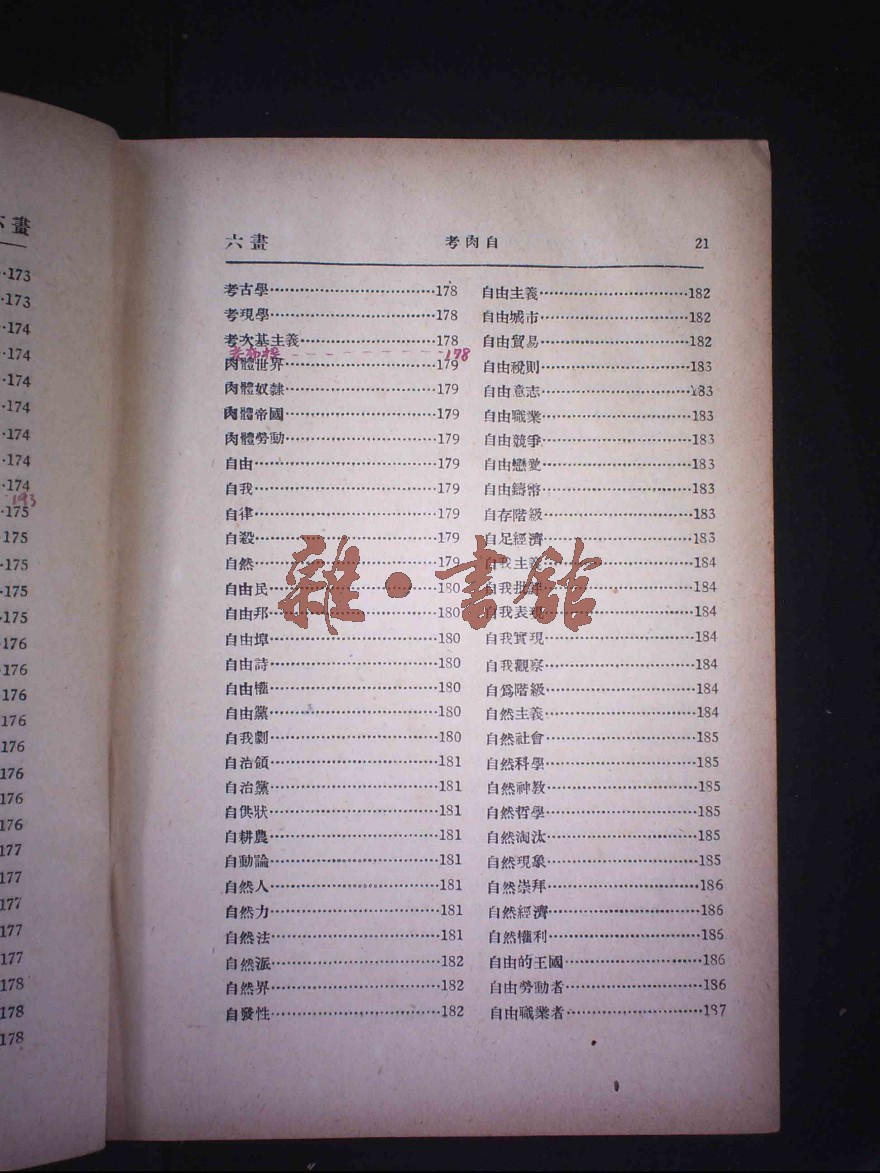 畫
·173
·173
·174
·174
·174
·174
·174
·174
·174
193
·175
·175
·175
·175
·175
·176
·176
·176
·176
·176
176
176
176
177
177
177
177
177
178
178
178
六畫 考肉自 21
考古學…178
考現學…178
考次基主義…178
178
肉體世界…179
肉體奴隸…179
肉體帝國…179
肉體勞動…179
自由…179
自我…179
自律…179
自殺…179
自然…179
自由民…180
自由邦…180
自由埠…180
自由詩…180
自由權…180
自由黨…180
自我劇…180
自治領…181
自治黨…181
自供狀…181
自耕農…181
自動論…181
自然人…181
自然力…181
自然法…181
自然派…182
自然界…182
自發性…182
自由主義…182
自由城市…182
自由貿易…182
自由稅則…183
自由意志…183
自由職業…183
自由競爭…183
自由戀愛…183
自由鑄幣…183
自存階級…183
自足經濟…183
自我主義…184
自我批評…184
自我表現…184
自我實現…184
自我觀察…184
自爲階級…184
自然主義…184
自然社會…185
自然科學…185
自然神教…185
自然哲學…185
自然淘汰…185
自然現象…185
自然崇拜…186
自然經濟…186
自然權利…186
自由的王國…186
自由勞動者…186
自由職業者…187
雜·書館